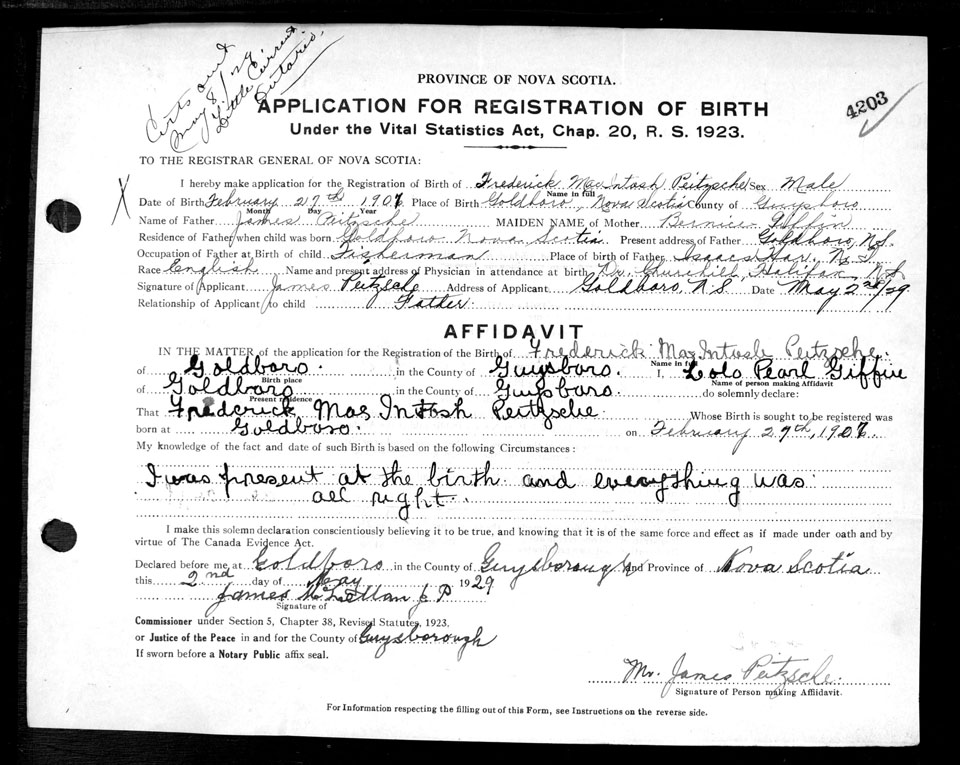 Certs out
May 8/29
Little Current
Ontario.
PROVINCE OF NOVA SCOTIA.
4203
APPLICATION FOR REGISTRATION OF BIRTH
Under the Vital Statistics Act, Chap. 20, R. S. 1923.
TO THE REGISTRAR GENERAL OF NOVA SCOTIA:
X
I hereby make application for the Registration of Birth of Frederick MacIntosh Peitzsche Sex Male
Name in full
Date of Birth February 27th 1907 Place of Birth Goldboro, Nova Scotia County of Guysboro
Month Day Year
Name of Father James Peitzsche MAIDEN NAME of Mother Bernice Giffin
Residence of Father when child was born Goldboro Nova Scotia Present address of Father Goldboro, N.S.
Occupation of Father at Birth of child Fisherman Place of birth of Father Isaacs Har. N.S.
Race English Name and present address of Physician in attendance at birth Dr. Churchill, Halifax, N.S.
Signature of Applicant James Peitzsche Address of Applicant Goldboro, N.S Date May 2nd/29
Relationship of Applicant to child Father
AFFIDAVIT
IN THE MATTER of the application for the Registration of the Birth of Frederick MacIntosh Peitzsche.
Name in full
of Goldboro. in the County of Guysboro. I, Lolo Pearl Giffin
Birth place Name of person making Affidavit
of Goldboro in the County of Guysboro. do solemnly declare:
Present residence
That Frederick Mac Intosh Peitzsche. Whose Birth is sought to be registered was
born at Goldboro. on February 27th, 1907.
My knowledge of the fact and date of such Birth is based on the following Circumstances:
I was present at the birth and everything was
all right.
I make this solemn declaration conscientiously believing it to be true, and knowing that it is of the same force and effect as if made under oath and by
virtue of The Canada Evidence Act.
Declared before me at Goldboro in the County of Guysborough and Province of Nova Scotia
this 2nd day of May 1929
James McLellan J P
Signature of
Commissioner under Section 5, Chapter 38, Revised Statutes, 1923.
or Justice of the Peace in and for the County of Guysborough
If sworn before a Notary Public affix seal.
Mr. James Peitzsche.
Signature of Person making Affidavit.
For Information respecting the filling out of this Form, see Instructions on the reverse side.